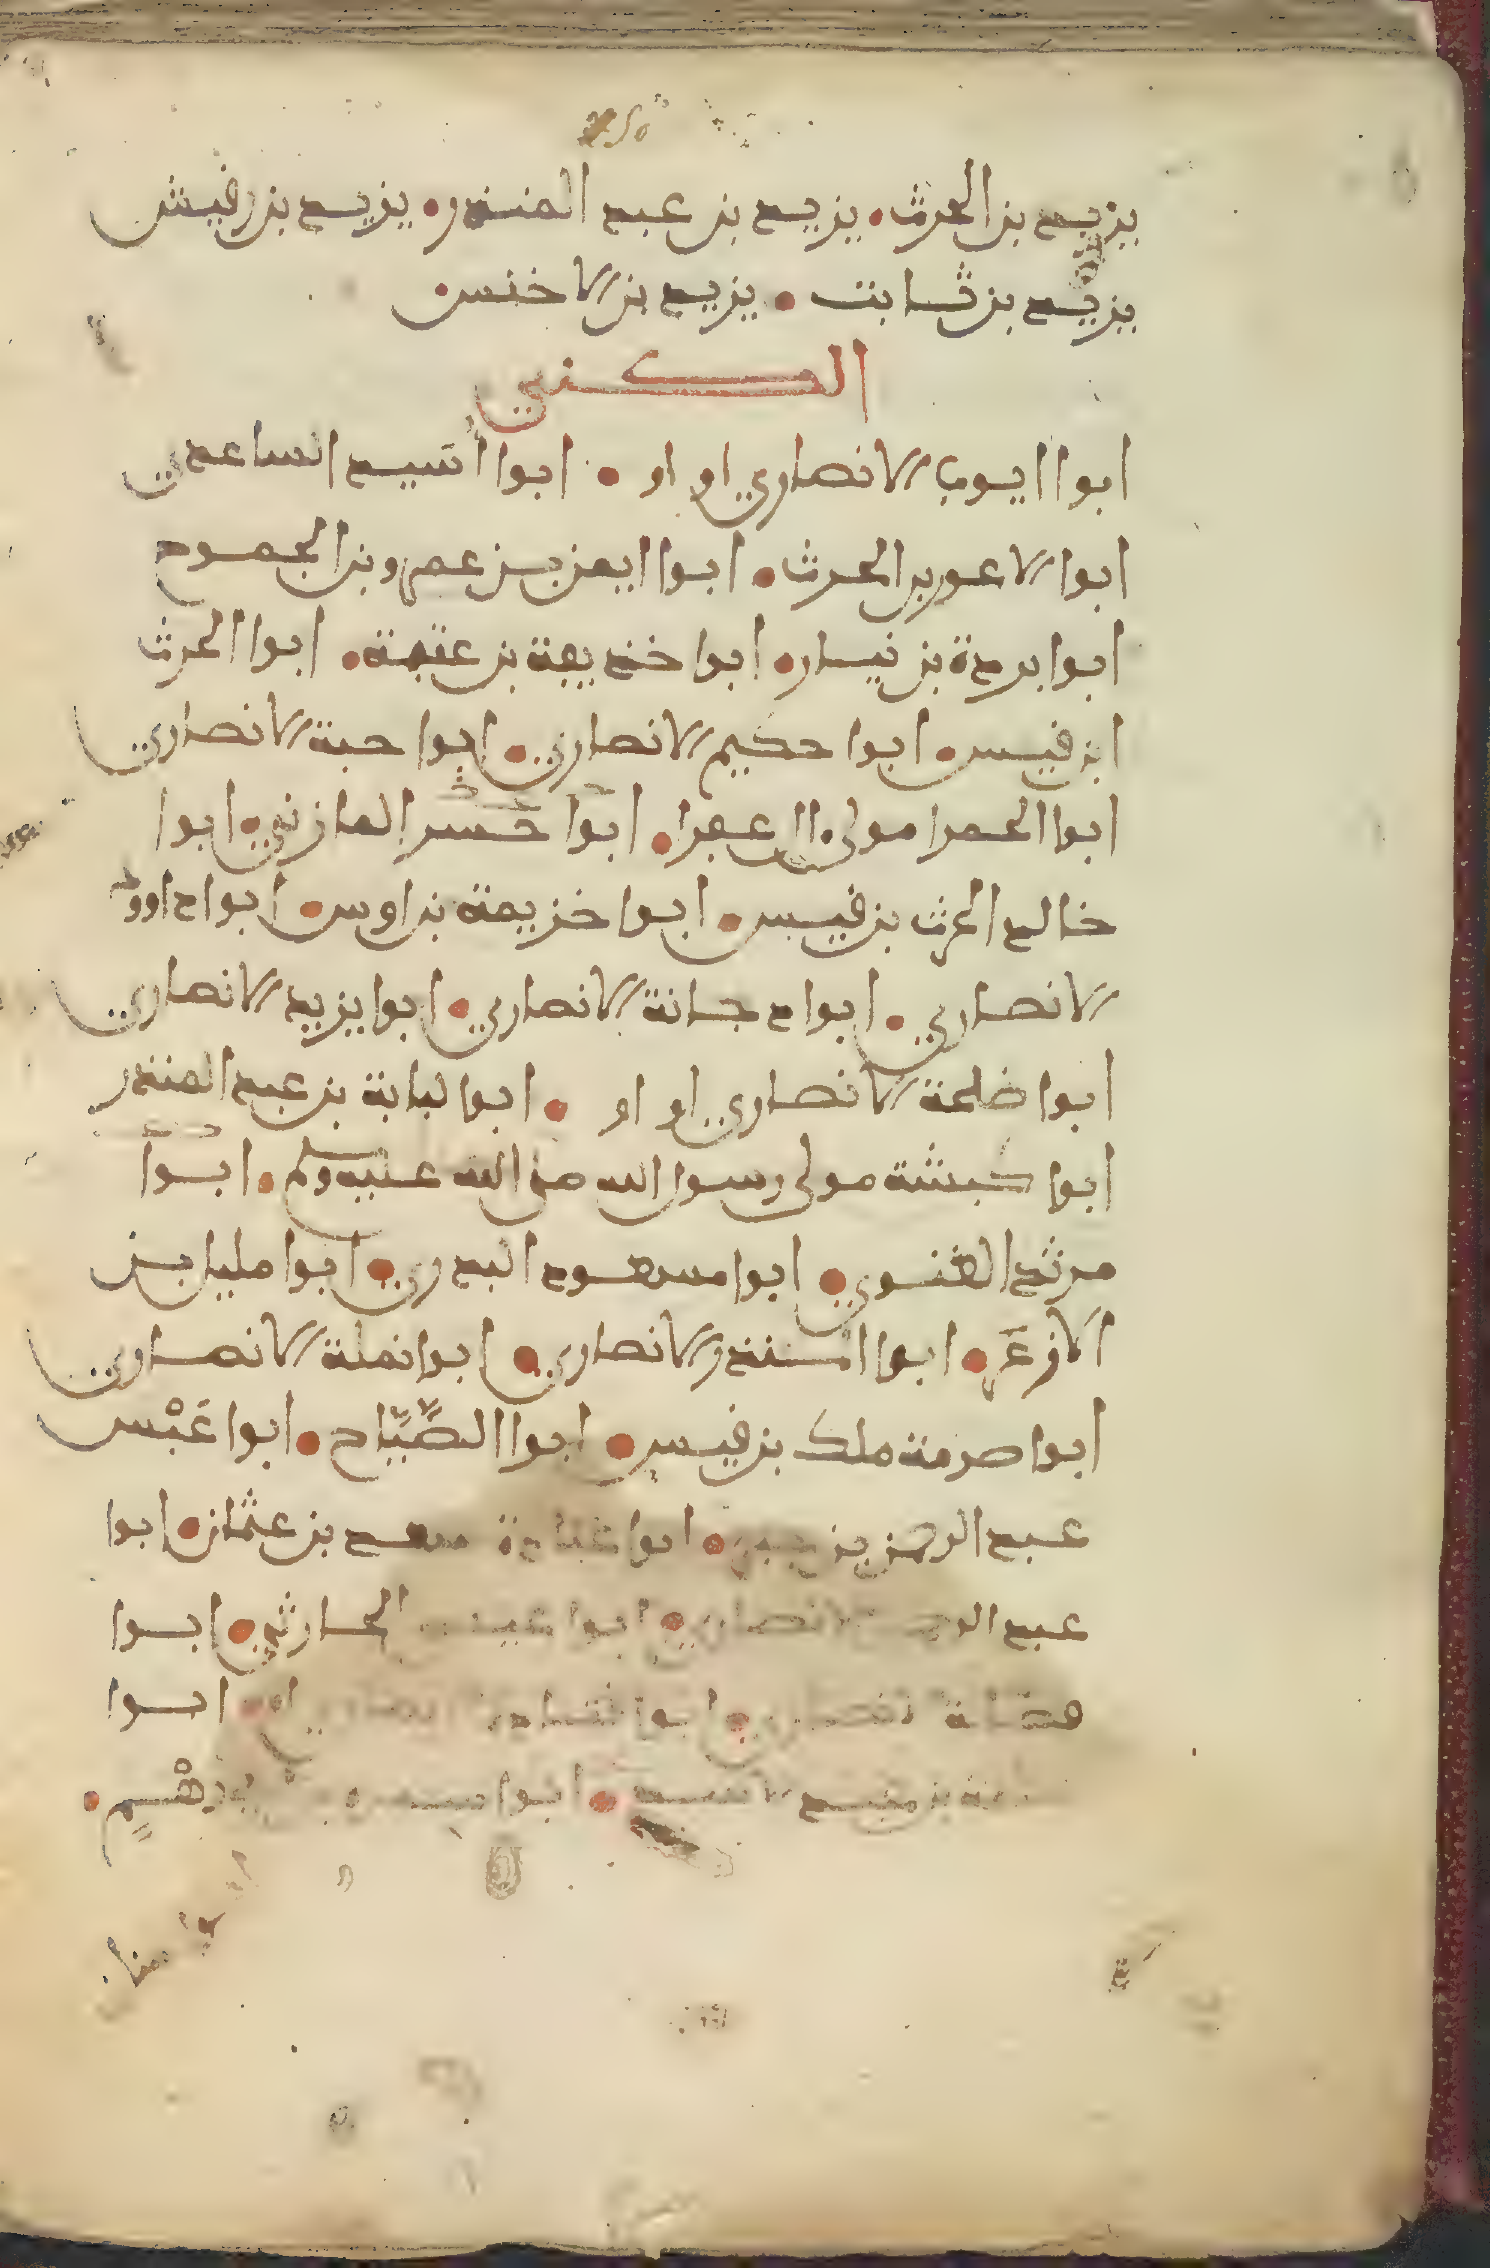 يزيد بن الحرث • يزيد بن عبد المنذر • يزيد بن رقيش
يزيد بن ثابت • يزيد بن الاخنس
الكنى
ابوا ايوب الانصاري او او • ابوا أسيد الساعدي
ابوا الاعور بن الحرث • ابوا ايمن بن عمرو بن الجموح
ابوا بردة بن نيار • ابوا خديمة بن عتبة • ابوا الحرث
ابن قيس • ابوا حكيم الانصاري • ابوا حبة الانصاري
ابوا الحمرا مولى ال عفرا • ابوا حسن المازني • ابوا
خالد الحرث بن قيس • ابوا خزيمة بن اوس • ابوا داوود
الانصاري • ابوا دجانة الانصاري • ابوا يزيد الانصاري
ابوا طلحة الانصاري او او • ابوا لبابة بن عبد المنذر
ابوا كبشة مولى رسول الله صلى الله عليه وسلم • ابوا
مرثد الغنوي • ابوا مسعود البدري • ابوا مليل بن
الازعر • ابوا المنذر الانصاري • ابوا نملة الانصاري
ابوا صرمة ملك بن قيس • ابوا الضَّيَّاح • ابوا عَبْس
عبد الرحمن بن جبر • ابوا عبادة سعد بن عثمان • ابوا
عبد الرحمن الانصاري • ابوا الحارثي • ابوا
فضالة الانصاري • ابوا قتادة الانصاري او • ابوا
• ابوا